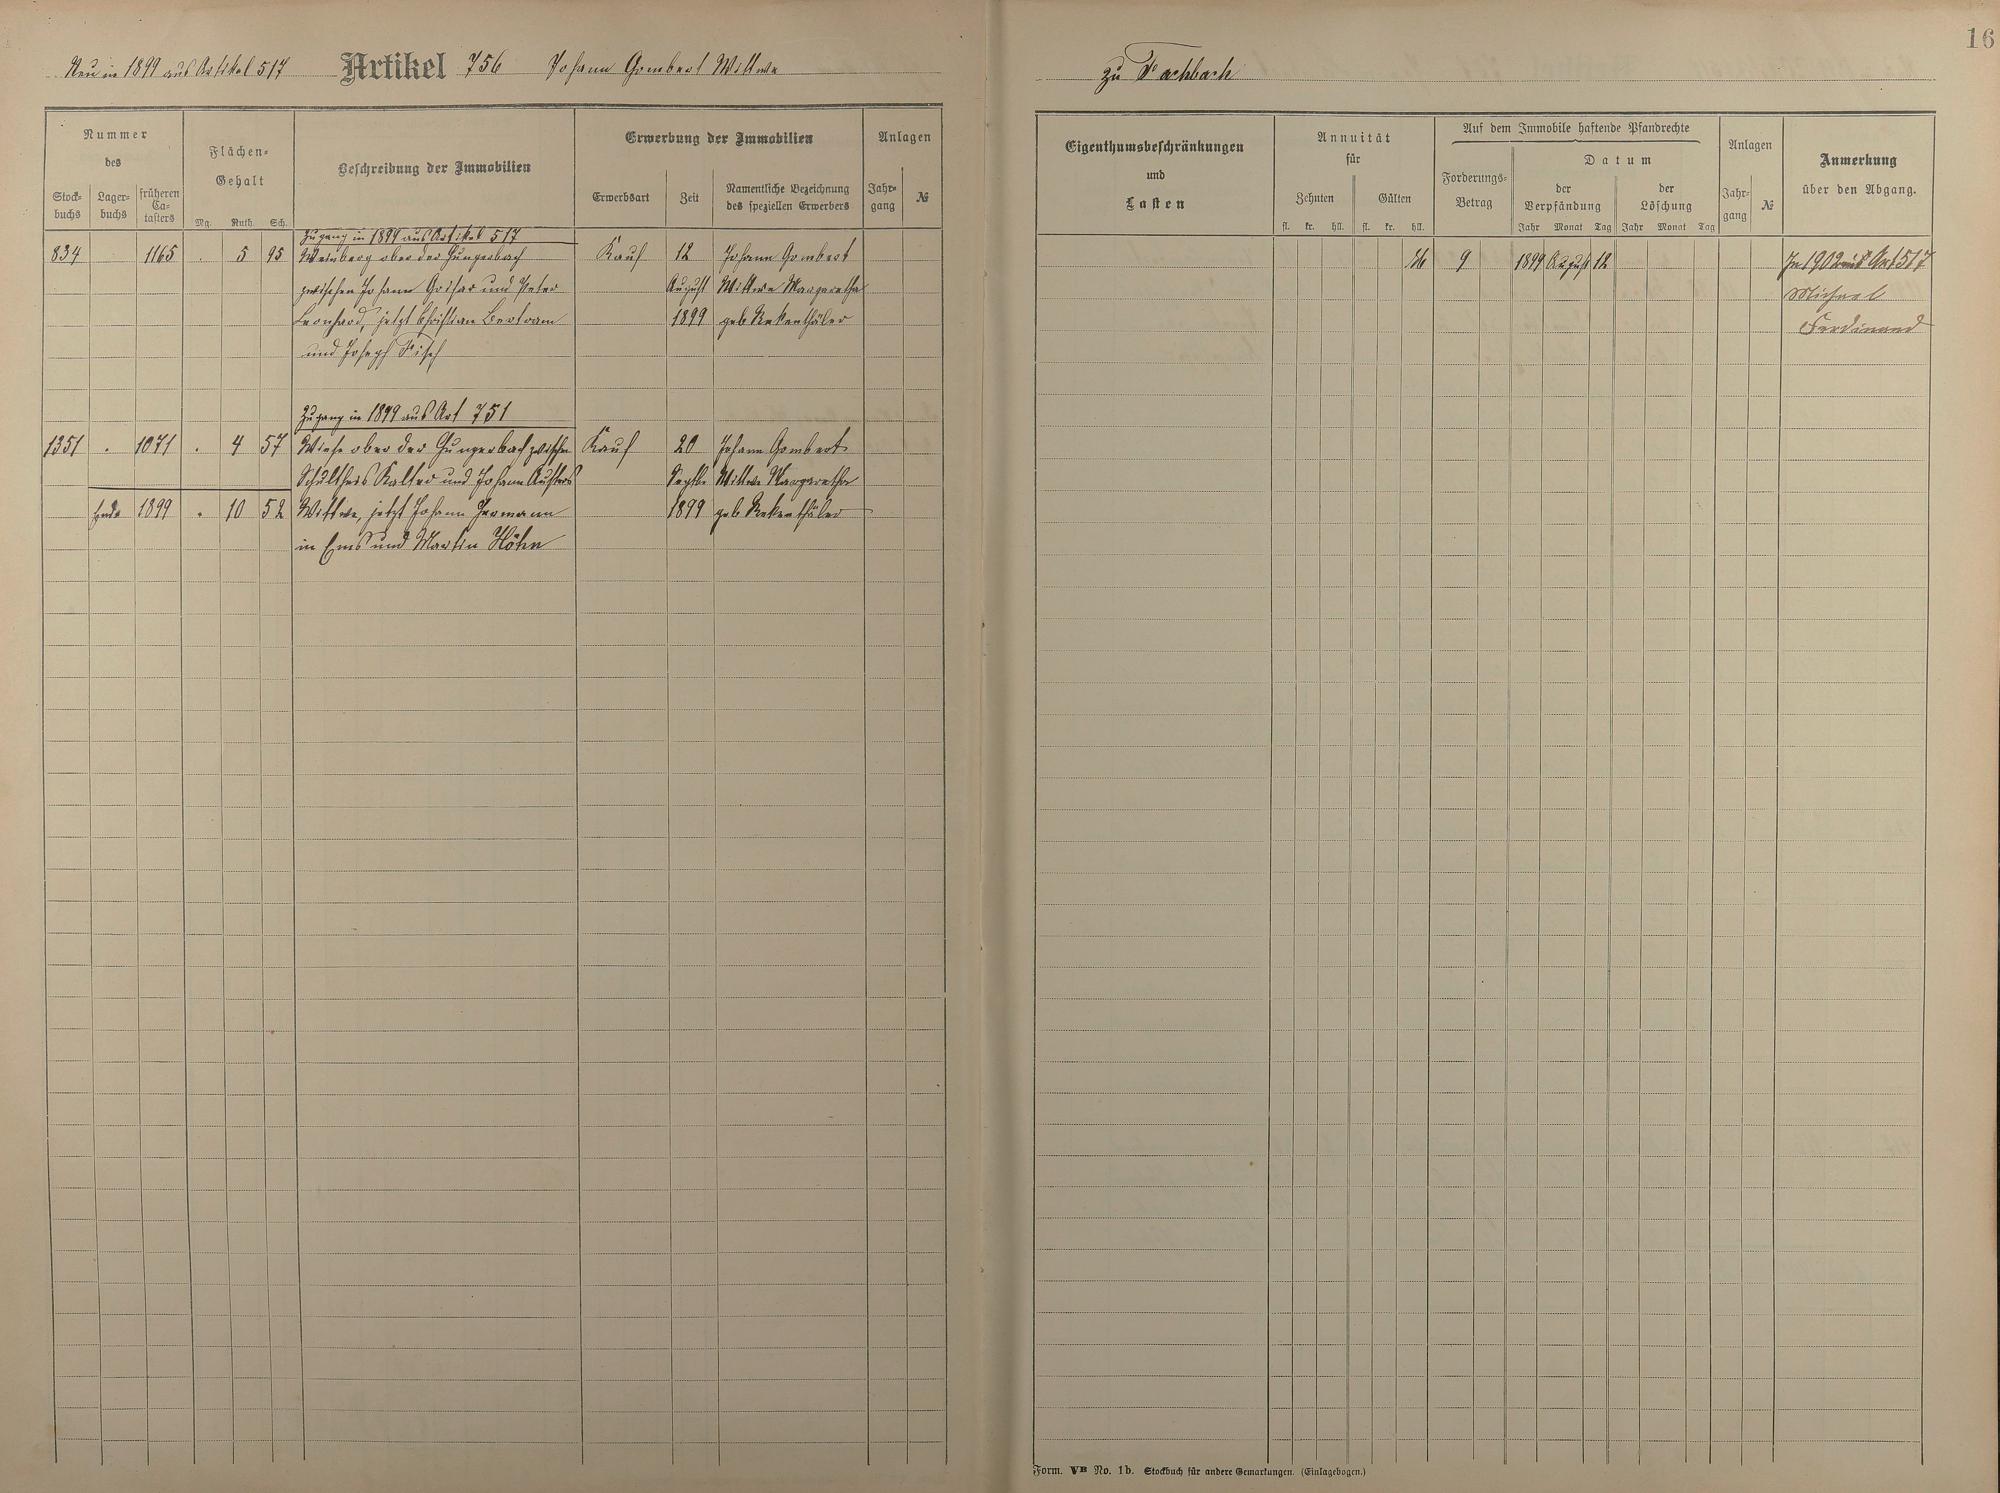 16
Neu in 1899 aus Artikel 517 Artikel 756 Johann Gombert Wittwe
zu Fachbach
Nummer
des
Stock-
buchs
Lager-
buchs
früheren
Ca-
tasters
Flächen-
Gehalt
Mg. Ruth. Sch.
Beschreibung der Immobilien
Erwerbung der Immobilien
Erwerbsart
Zeit
Namentliche Bezeichnung
des speziellen Erwerbers
Anlagen
Jahr-
gang
№
Eigenthumsbeschränkungen
und
Lasten
Annuität
für
Zehnten Gülten
fl. kr. hll. fl. kr. hll.
Auf dem Immobile haftende Pfandrechte
Forderungs-
Betrag
Datum
der
Verpfändung
der
Löschung
Jahr Monat Tag Jahr Monat Tag
Anlagen
Jahr-
gang
№
Anmerkung
über den Abgang.
Zugang in 1899 aus Artikel 517
834 1165 . 5 95 Weinberg ober der Hungerbach Kauf 12 Johann Gombert
zwischen Johann Grisar und Peter August Wittwe Margaretha
Leonhard, jetzt Christian Bertram 1899 geb
und Joseph Fisch
Zugang in 1899 aus Art 751
1351 . 1071 . 4 57 Wiese ober der Hungerbach zwischen Kauf 20 Johann Gombert
Schultheis Kalter und Johann Septbr Wittwe Margaretha
Ende 1899 . 10 52 Wittwe, jetzt Johann Hermann 1899 geb
in Ems und Martin Höhn
9 1899 August 12 In 1902 Art 517
Michael
Ferdinand
Form. VB No. 1b. Stockbuch für andere Gemarkungen. (Einlagebogen.)